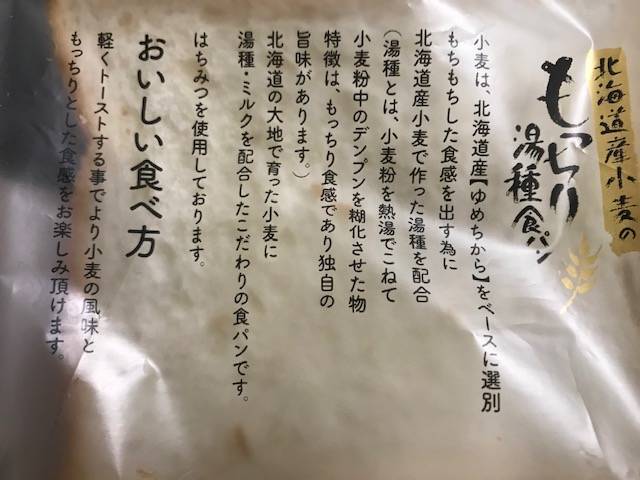 北海道産小麦の
もっちり
湯種食パン
小麦は、北海道産【ゆめちから】をベースに選別
もちもちした食感を出す為に
北海道産小麦で作った湯種を配合
(湯種とは、小麦粉を熱湯でこねて
小麦粉中のデンプンを糊化させた物
特徴は、もっちり食感であり独自の
旨味があります。)
北海道の大地で育った小麦に
湯種・ミルクを配合したこだわりの食パンです。
はちみつを使用しております。
おいしい食べ方
軽くトーストする事でより小麦の風味と
もっちりとした食感をお楽しみ頂けます。